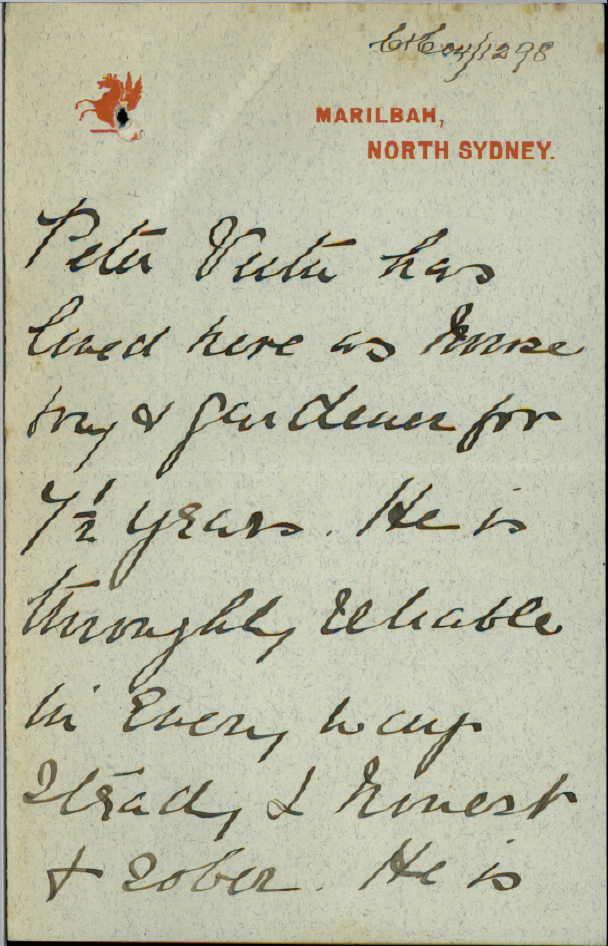 MARILBAH,
NORTH SYDNEY.
Peter has
lived here as House
boy & gardener for
7½ years. He is
throughly reliable
in Every way
Steady & honest
& sober. He is